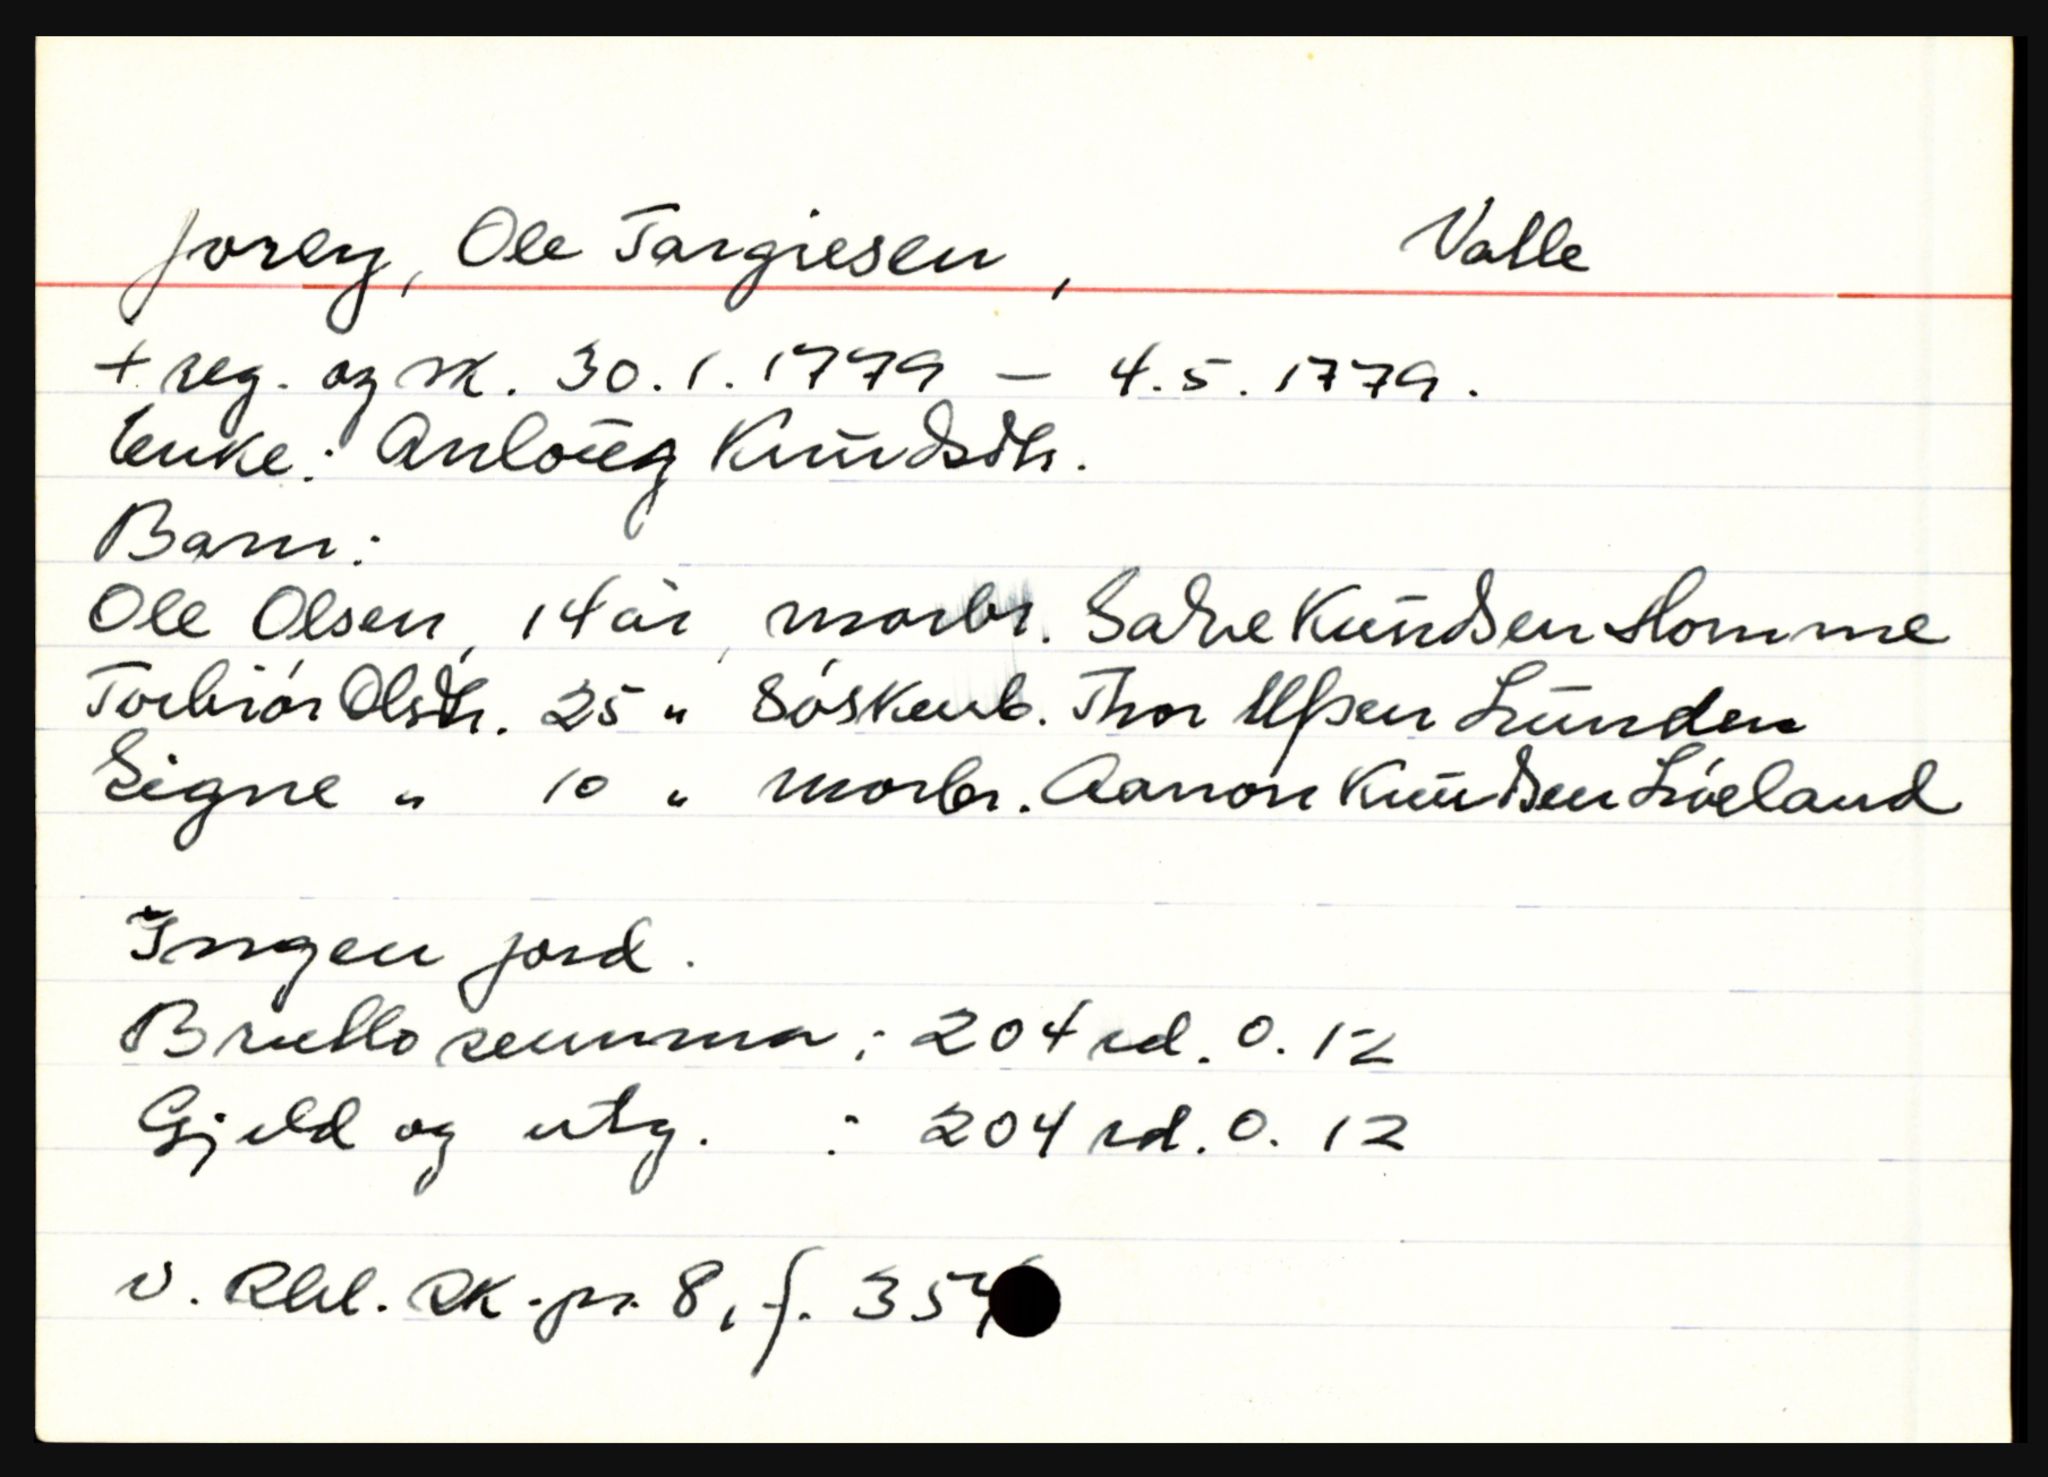 Jorey, Ole Targiesen, Valle
+ reg. og sk. 30.1.1779 – 4.5.1779.
Enke: Anloug Knudsdtr.
Barn:
Ole Olsen, 14 år, morbr. Salve Knudsen Homme
Torbiør Olsdtr. 25 " Søskenb. Thor Ulfsen Lunden
Signe " 10 " morbr. Aanon Knudsen Løeland
Ingen jord.
Brutto summa: 204 rd. 0. 12
Gjeld og utg. : 204 rd. 0. 12
v. Rbl. sk.pr. 8, f. 354